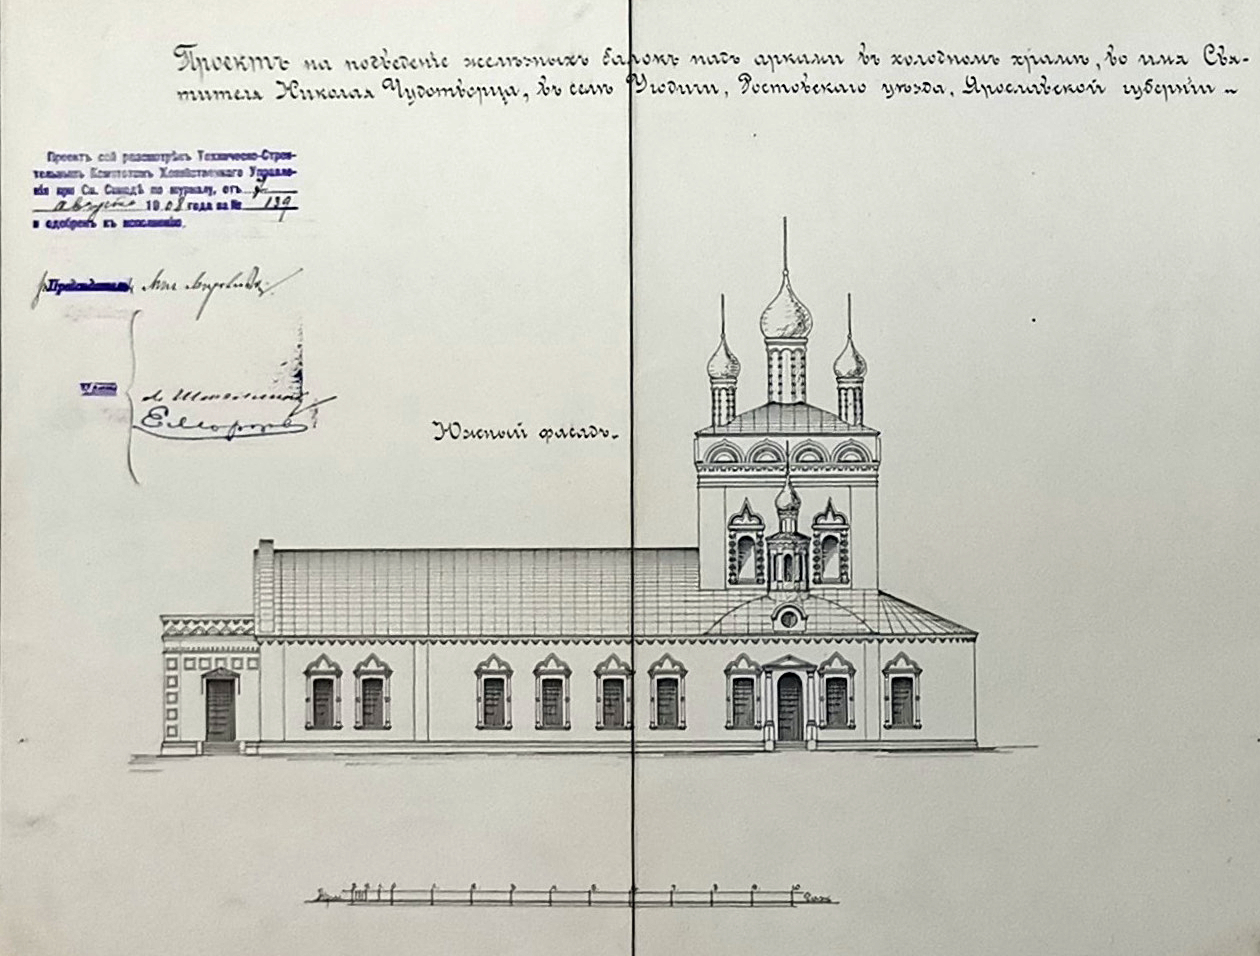 Проектъ на подведеніе желѣзныхъ балокъ подъ арками въ холодномъ храмѣ, во имя Свя-
тителя Николая Чудотворца, въ селѣ Угодичи, Ростовскаго уѣзда, Ярославской губерніи
Проектъ сей разсмотрѣнъ Техническо-Строи-
тельнымъ Комитетомъ Хозяйственнаго Управле-
нія при Св. Синодѣ по журналу, отъ 7
августа 1908 года за № 139
и одобренъ къ исполненію.
Предсѣдатель
Члены
Южный фасадъ